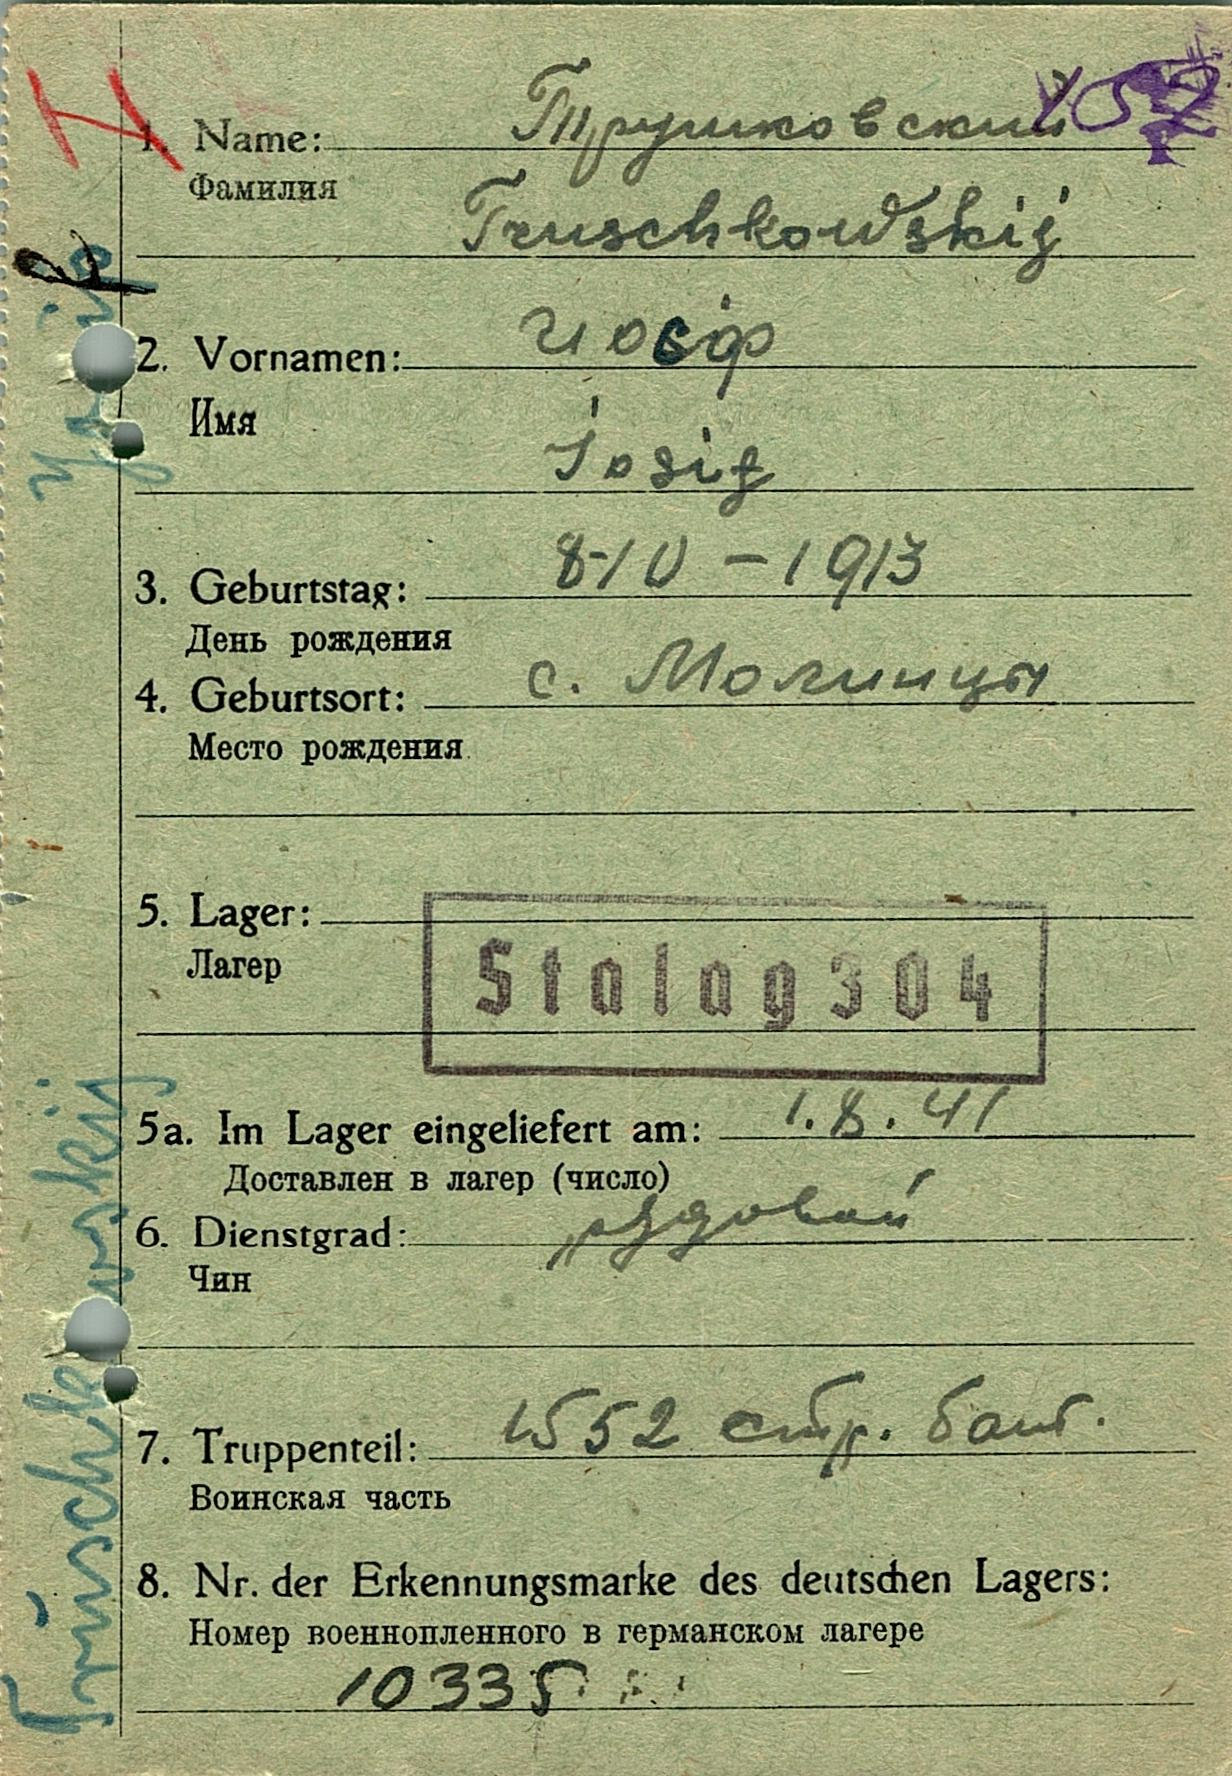 1. Name: Трушковский
Фамилия
Truschkowskij
2. Vornamen: Иосиф
Имя
Iosif
3. Geburtstag: 8-10-1913
День рождения
4. Geburtsort: с. Молинцы
Место рождения
5. Lager:
Лагер
Stalag 304
5a. Im Lager eingeliefert am: 1.8.41
Доставлен в лагер (число)
6. Dienstgrad: рядовой
Чин
7. Truppenteil: 1552 стр. бат.
Воинская часть
8. Nr. der Erkennungsmarke des deutschen Lagers:
Номер военнопленного в германском лагере
10335
Truschkowskij